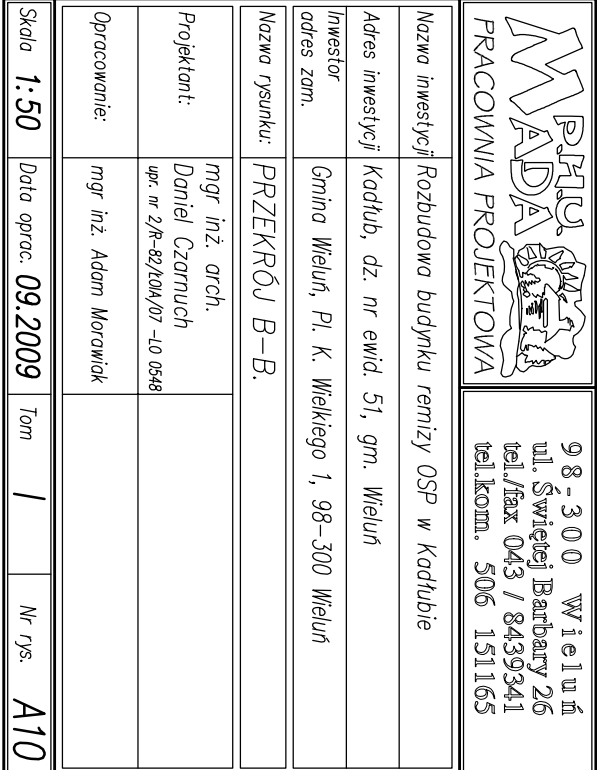 P.H.U.
MADA
PRACOWNIA PROJEKTOWA
98-300 Wieluń
ul. Świętej Barbary 26
tel./fax 043 / 8439341
tel.kom. 506 151165
Nazwa inwestycji Rozbudowa budynku remizy OSP w Kadłubie
Adres inwestycji Kadłub, dz. nr ewid. 51, gm. Wieluń
Inwestor
adres zam.
Gmina Wieluń, Pl. K. Wielkiego 1, 98-300 Wieluń
Nazwa rysunku: PRZEKRÓJ B-B.
Projektant:
mgr inż. arch.
Daniel Czarnuch
upr. nr 2/R-82/ŁOIA/07 -LO 0548
Opracowanie: mgr inż. Adam Morawiak
Skala 1:50 Data oprac. 09.2009 Tom I Nr rys. A10